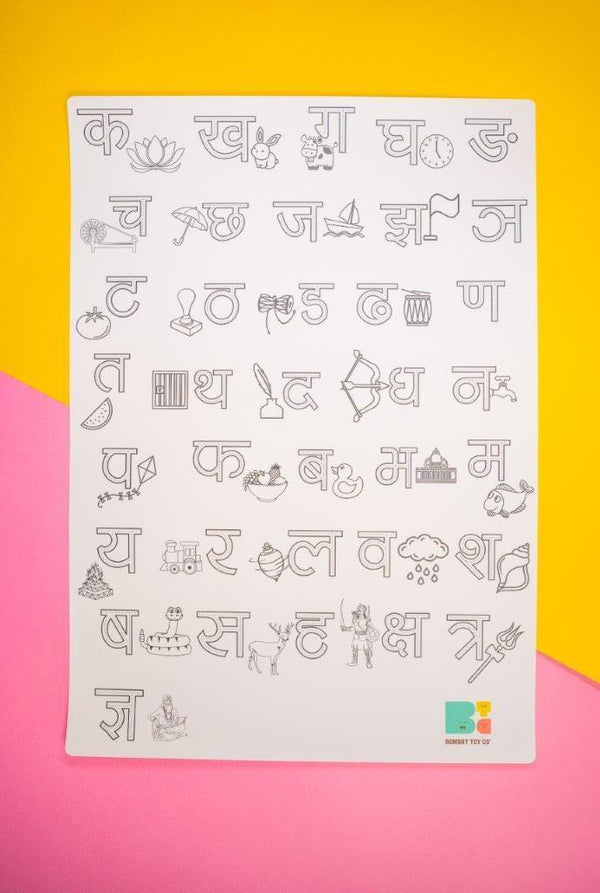 क ख ग घ ङ
च छ ज झ ञ
ट ठ ड ढ ण
त थ द ध न
प फ ब भ म
य र ल व श
ष स ह क्ष त्र
ज्ञ
BOMBAY TOY CO